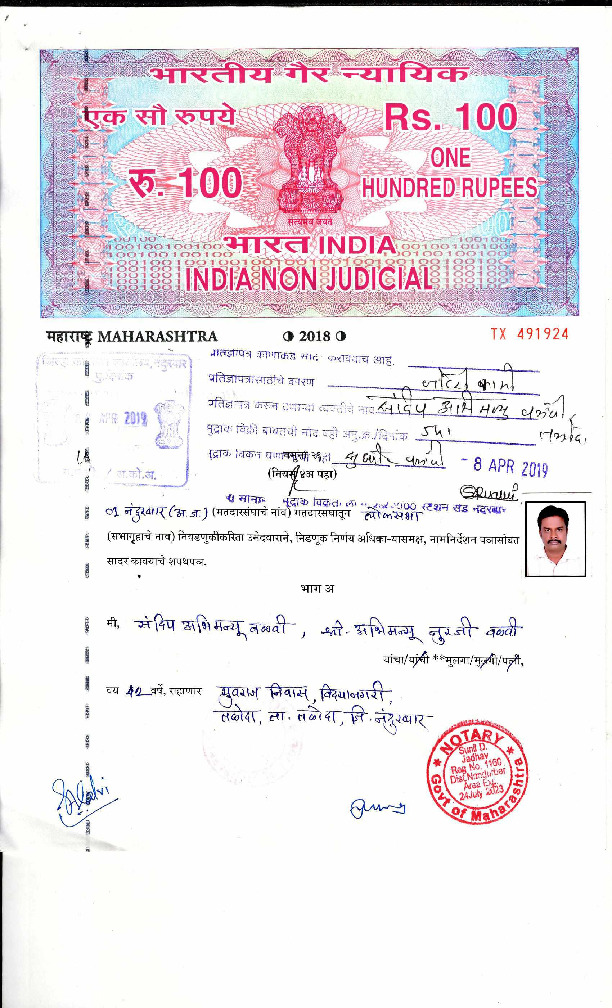 भारतीय गैर न्यायिक
एक सौ रुपये
Rs. 100
रु. 100
ONE
HUNDRED RUPEES
सत्यमेव जयते
भारत INDIA
INDIA NON JUDICIAL
महाराष्ट्र MAHARASHTRA
2018
TX 491924
प्रतिज्ञापत्र कोणाकडे सादर करावयाचे आहे.
प्रतिज्ञापत्रासाठीचे कारण
प्रतिज्ञापत्र करून देणाऱ्या व्यक्तीचे नाव संदिप अभिमन्यु वळवी
मुद्रांक विक्री बाबतची नोंद वही अनु.क्र./दिनांक
APR 2019
- 8 APR 2019
नमुना २६
(नियम ४अ पहा)
01 नंदुरबार (अ.ज.) (मतदारसंघाचे नाव) मतदारसंघातून लोकसभा
(सभागृहाचे नाव) निवडणुकीकरिता उमेदवाराने, निवडणूक निर्णय अधिकाऱ्यासमक्ष, नामनिर्देशन पत्रासोबत
सादर करावयाचे शपथपत्र.
भाग अ
मी, संदिप अभिमन्यू वळवी, श्री. अभिमन्यू नुरजी वळवी
यांचा/यांची **मुलगा/मुलगी/पत्नी,
वय 42 वर्षे, राहाणार युवराज निवास, विद्यानगरी,
तळोदा, ता. तळोदा, जि. नंदुरबार
NOTARY
Sunil D.
Jadhav
Reg No. 1160
Dist Nandurbar
Area Ext.
24 July 2023
Govt of Maharashtra